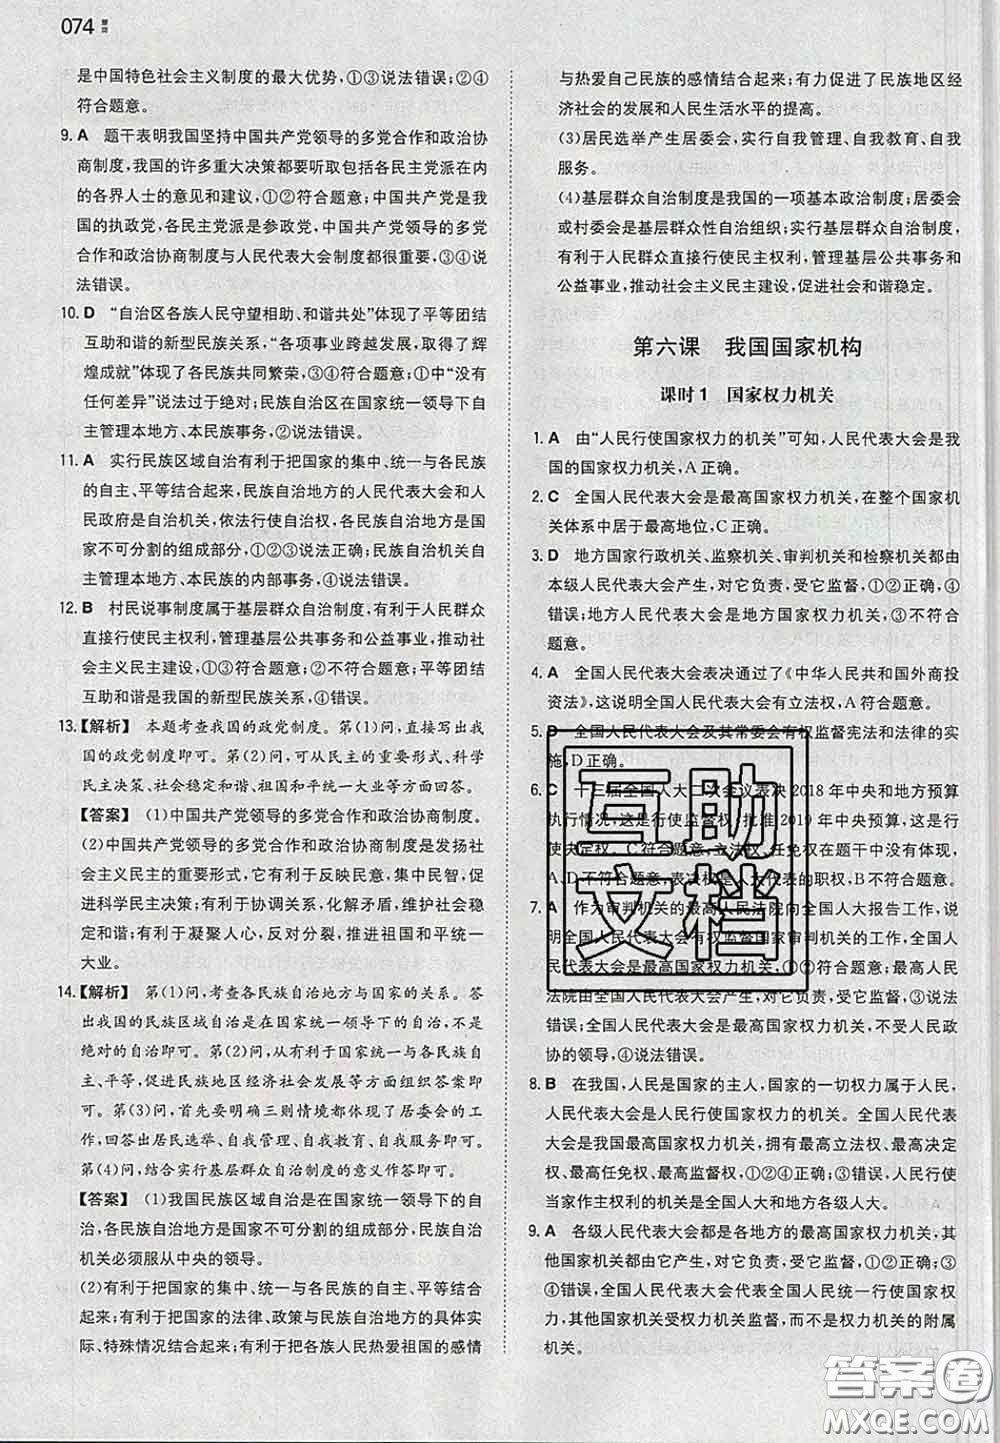 074
是中国特色社会主义制度的最大优势,①③说法错误;②④
符合题意。
9. A 题干表明我国坚持中国共产党领导的多党合作和政治协
商制度,我国的许多重大决策都要听取包括各民主党派在内
的各界人士的意见和建议,①②符合题意;中国共产党是我
国的执政党,各民主党派是参政党,中国共产党领导的多党
合作和政治协商制度与人民代表大会制度都很重要,③④说
法错误。
10. D “自治区各族人民守望相助、和谐共处”体现了平等团结
互助和谐的新型民族关系,“各项事业跨越发展,取得了辉
煌成就”体现了各民族共同繁荣,③④符合题意;①中“没有
任何差异”说法过于绝对;民族自治区在国家统一领导下自
主管理本地方、本民族事务,②说法错误。
11. A 实行民族区域自治有利于把国家的集中、统一与各民族
的自主、平等结合起来,民族自治地方的人民代表大会和人
民政府是自治机关,依法行使自治权,各民族自治地方是国
家不可分割的组成部分,①②③说法正确;民族自治机关自
主管理本地方、本民族的内部事务,④说法错误。
12. B 村民说事制度属于基层群众自治制度,有利于人民群众
直接行使民主权利,管理基层公共事务和公益事业,推动社
会主义民主建设,①③符合题意;②不符合题意;平等团结
互助和谐是我国的新型民族关系,④错误。
13.【解析】 本题考查我国的政党制度。第(1)问,直接写出我
国的政党制度即可。第(2)问,可从民主的重要形式、科学
民主决策、社会稳定和谐、祖国和平统一大业等方面回答。
【答案】 (1)中国共产党领导的多党合作和政治协商制度。
(2)中国共产党领导的多党合作和政治协商制度是发扬社
会主义民主的重要形式,它有利于反映民意,集中民智,促
进科学民主决策;有利于协调关系,化解矛盾,维护社会稳定
和谐;有利于凝聚人心,反对分裂,推进祖国和平统一
大业。
14.【解析】 第(1)问,考查各民族自治地方与国家的关系。答
出我国的民族区域自治是在国家统一领导下的自治,不是
绝对的自治即可。第(2)问,从有利于国家集中、民族自
主、平等,促进民族地区经济社会发展等方面组织答案即
可。第(3)问,首先要明确三则情境都体现了居委会的工
作,回答出居民选举、自我管理、自我教育、自我服务即可。
第(4)问,结合实行基层群众自治制度的意义作答即可。
【答案】 (1)我国民族区域自治是在国家统一领导下的自
治,各民族自治地方是国家不可分割的组成部分,民族自治
机关必须服从中央的领导。
(2)有利于把国家的集中、统一与各民族的自主、平等结合
起来;有利于把国家的法律、政策与民族自治地方的具体实
际、特殊情况结合起来;有利于把各族人民热爱祖国的感情
与热爱自己民族的感情结合起来;有力促进了民族地区经
济社会的发展和人民生活水平的提高。
(3)居民选举产生居委会,实行自我管理、自我教育、自我
服务。
(4)基层群众自治制度是我国的一项基本政治制度;居委会
或村委会是基层群众性自治组织;实行基层群众自治制度,
有利于人民群众直接行使民主权利,管理基层公共事务和
公益事业,推动社会主义民主建设,促进社会和谐稳定。
第六课 我国国家机构
课时1 国家权力机关
1. A 由“人民行使国家权力的机关”可知,人民代表大会是我
国的国家权力机关,A正确。
2. C 全国人民代表大会是最高国家权力机关,在整个国家机
关体系中居于最高地位,C正确。
3. D 地方国家行政机关、监察机关、审判机关和检察机关都由
本级人民代表大会产生,对它负责,受它监督,①②正确,④
错误;地方人民代表大会是地方国家权力机关,③不符合
题意。
4. A 全国人民代表大会表决通过了《中华人民共和国外商投
资法》,这说明全国人民代表大会有立法权,A符合题意。
5. D 全国人民代表大会及其常委会有权监督宪法和法律的实
施,D正确。
6. C 十三届全国人大二次会议表决2018年中央和地方预算
执行情况,这是行使监督权;批准2019年中央预算,这是行
使决定权。C符合题意;立法权、任免权在题干中没有体现,
A、D不符合题意;表决权是人大代表的职权,B不符合题意。
7. A 作为审判机关的最高人民法院向全国人大报告工作,说
明全国人民代表大会有权监督国家审判机关的工作,全国人
民代表大会是最高国家权力机关,①②符合题意;最高人民
法院由全国人民代表大会产生,对它负责,受它监督,③说法
错误;全国人民代表大会是最高国家权力机关,不受人民政
协的领导,④说法错误。
8. B 在我国,人民是国家的主人,国家的一切权力属于人民,
人民代表大会是人民行使国家权力的机关。全国人民代表
大会是我国最高国家权力机关,拥有最高立法权、最高决定
权、最高任免权、最高监督权,①②④正确;③错误,人民行使
当家作主权利的机关是全国人大和地方各级人大。
9. A 各级人民代表大会都是各地方的最高国家权力机关,其
他国家机关都由它产生,对它负责,受它监督,①②正确;③
④错误,全国人民代表大会是最高国家权力机关,在国家机
构中,其他国家机关受国家权力机关监督,而不是权力机关的附属
机关。
互助
文档
答案卷
MXQE.COM